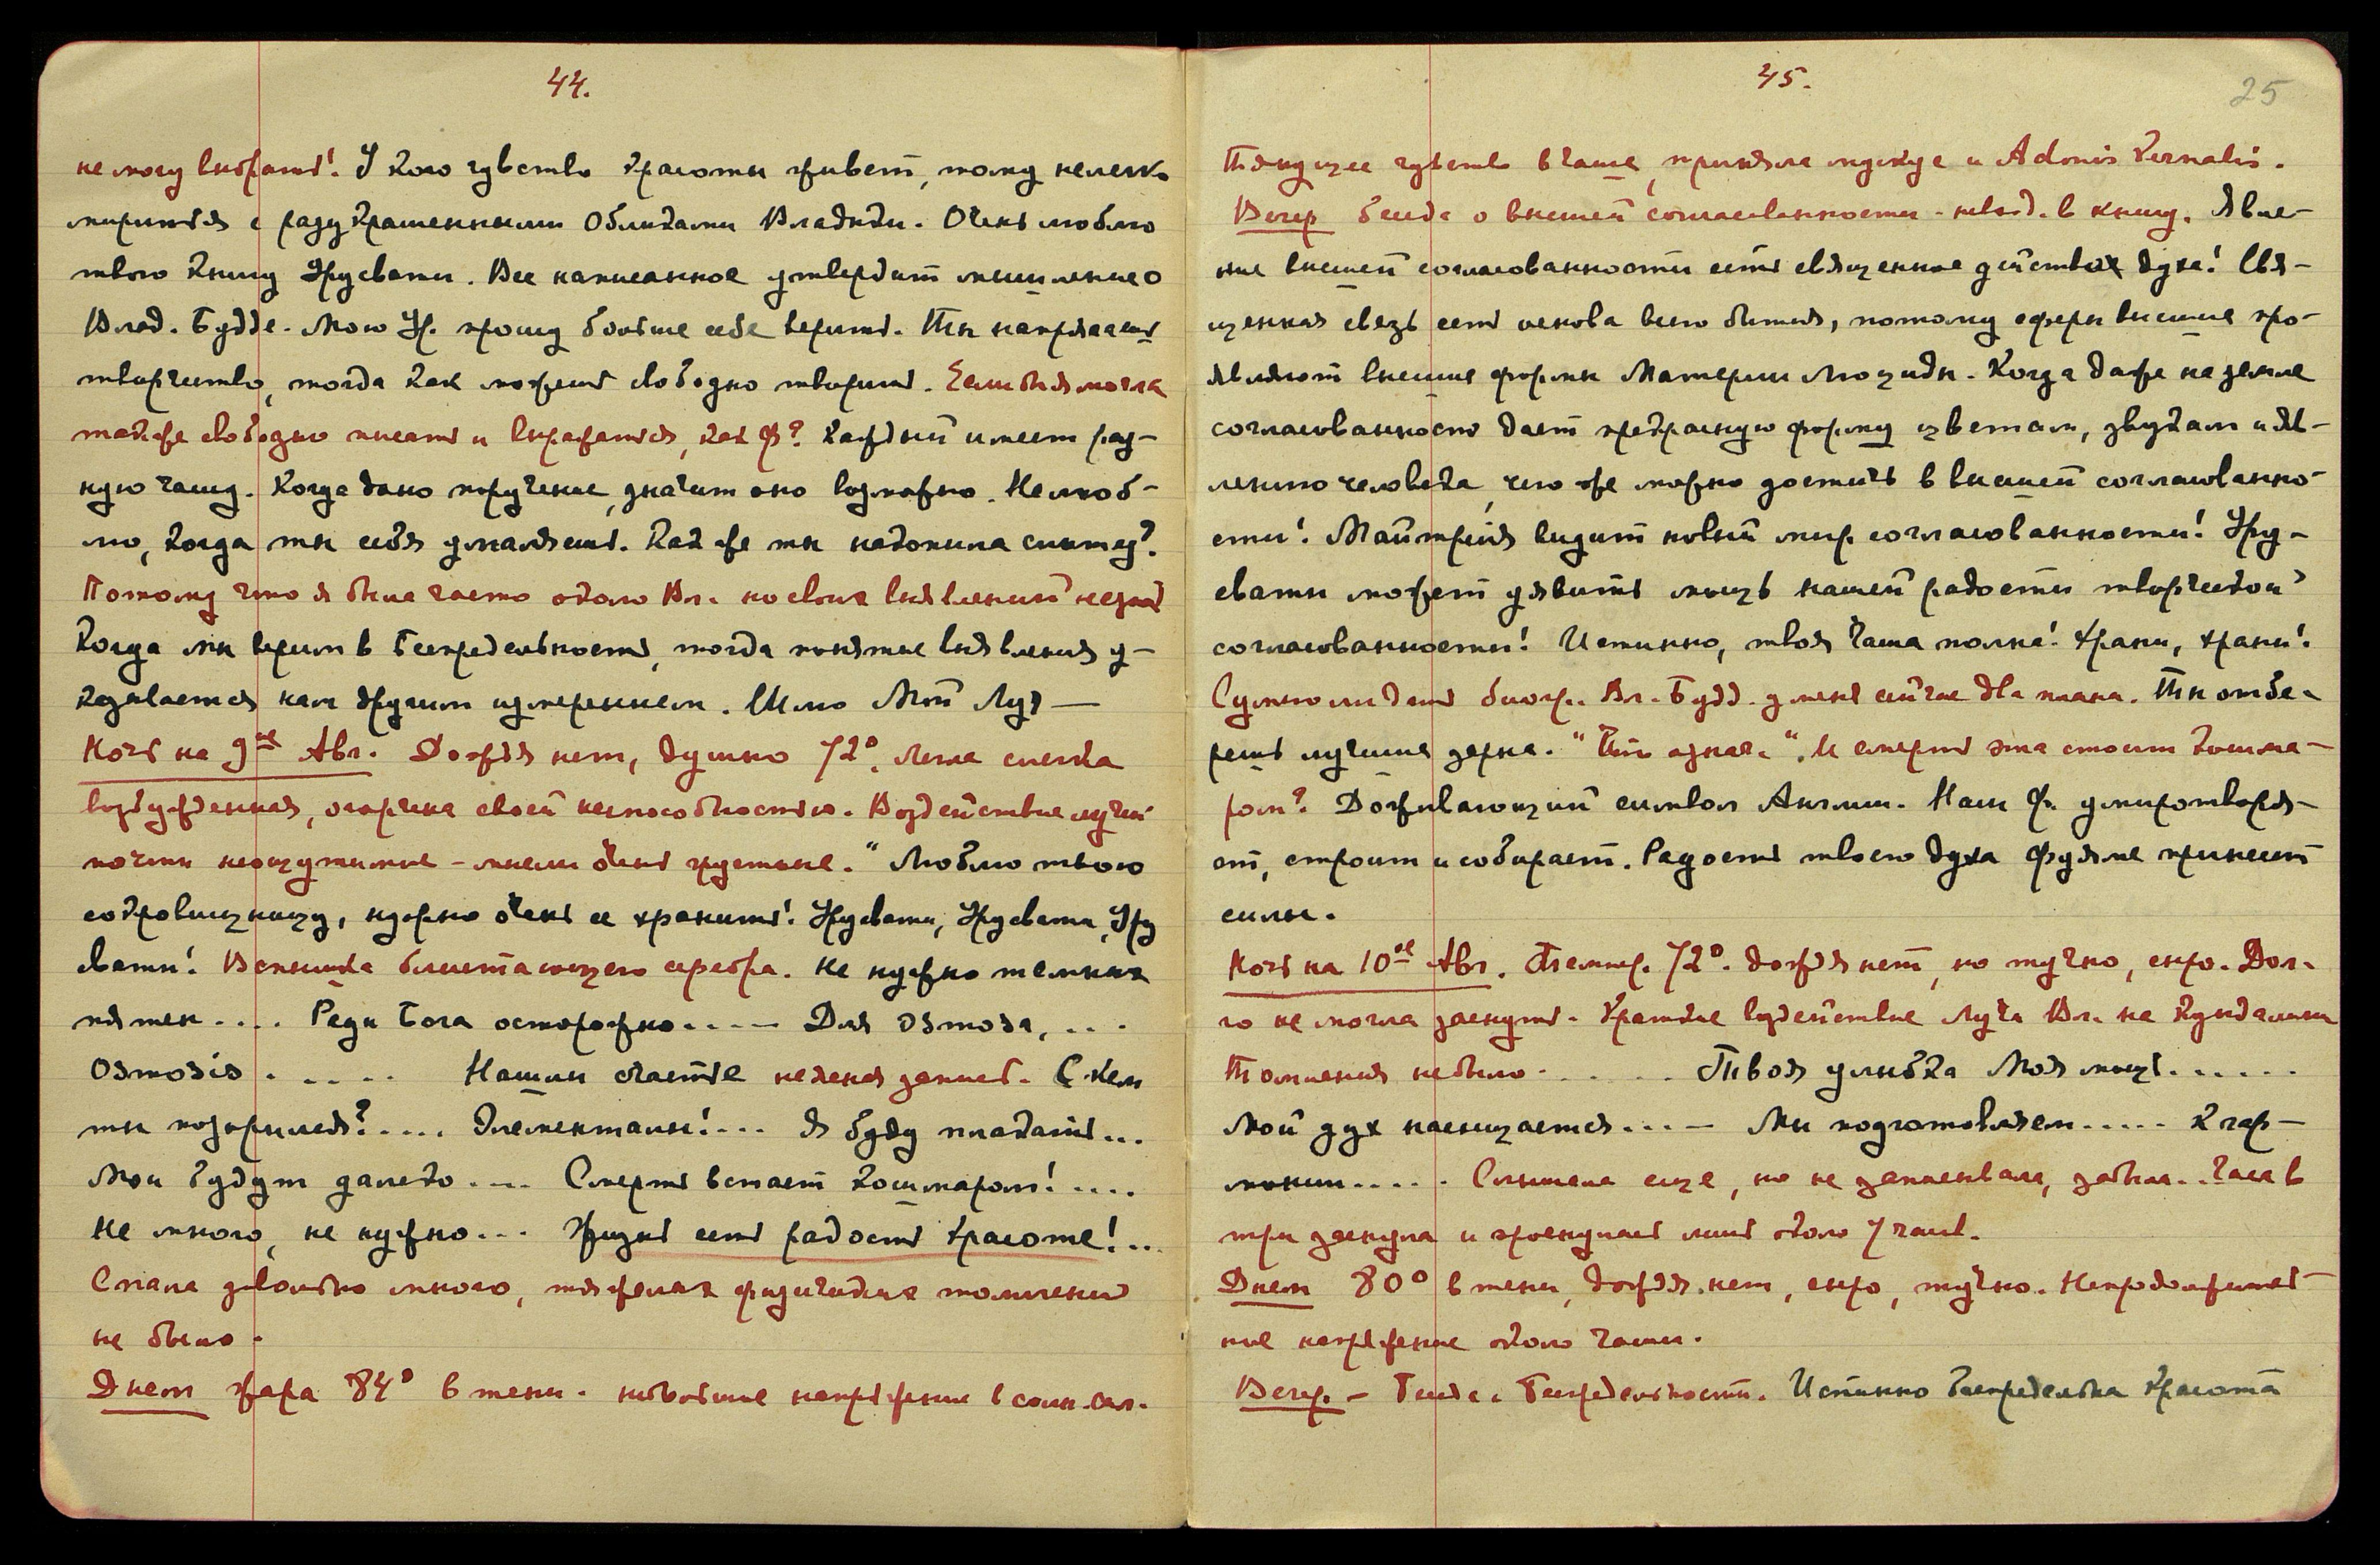 44.
не могу выбрать! У кого чувство красоты живет, тому нелегко
мириться с разукрашенными Обликами Владыки. Очень люблю
твою книгу Урусвати. Все написанное утвердит мышление о
Влад. Будде. Мою Ур. прошу больше себе верить. Ты напрягаешь
творчество, тогда как можешь свободно творить. Если бы я могла
также свободно писать и выражаться, как Ф? Каждый имеет раз-
ную чашу. Когда дано поручение, значит оно возможно. Не люб-
лю, когда ты себя умаляешь. Как же ты накопила синтез?
Потому что я была часто около Вл. но своих выявлений не
Когда мы верим в Беспредельность, тогда понятие выявления у-
казывается нам другим измерением. Шлю Мой Луч —
Ночь на 9ое Авг. Дождя нет, душно 72°. Легла слегка
возбужденная, огорчена своей неспособностью. Воздействие лучей
почти неощутимые - мысли очень грустные. " Люблю твою
сокровищницу, нужно очень ее хранить! Урусвати, Урусвати, Уру
свати! Вспышка блистающего серебра. Не нужно темных
пятен.... Ради Бога осторожно..... Для Osmosa, ...
Osmosis ..... Нашли счастье неясная запись. С кем
ты поздорилась?.... Элементалы!... Я буду плакать...
Мои будут далеко .... Смерть встает кошмаром! ....
Не много, не нужно... Жизнь есть радость Красоте! ..
Спала довольно много, тяжелых физических томлений
не было.
Днем жара 84° в тени. небольшое напряжение в солн. спл.
45.
25
Тянущее чувство в Чаше, приняла мускус и Adonis Vernalis.
Вечер Беседа о высшей согласованности - в книгу. Явле-
ние высшей согласованности есть священное действах духа! Свя-
щенная связь есть основа всего бытия, потому сферы высшие про-
являют высшие формы Материи Люциды. Когда даже на земле
согласованность дает прекрасную форму цветам, звукам и яв-
лению человека, чего же можно достичь в высшей согласованно-
сти! Майтрейя видит новый мир согласованности! Уру-
свати может явить мощь нашей радости творческой
согласованности! Истинно, твоя Чаша полна! Храни, храни!
Сумею ли дать биогр. Вл. Будд. у меня сейчас два плана. Ты отбе-
решь лучшие зерна. "Что означ. ". И смерть эта стоит кошма-
ром? Доживающий символ Англии. Наш Ф. умиротворя-
ет, строит и собирает. Радость твоего духа Фуяме принесет
силы.
Ночь на 10ое Авг. Темпер. 72°. дождя нет, но тучно, сыро. Дол-
го не могла заснуть. Краткие воздействие Луча Вл. на Кундалини
Томления не было...... Твоя улыбка Моя мощь......
Мой дух насыщается.... — Мы подготовляем..... К гар-
монии..... Слышала еще, но не записывала, забыла.. Часа в
три заснула и проснулась лишь около 7 часов.
Днем 80° в тени, дождя нет, сыро, тучно. Непродолжитель-
ное напряжение около Чаши.
Вечер. — Беседа о Беспредельности. Истинно беспредельна Красота